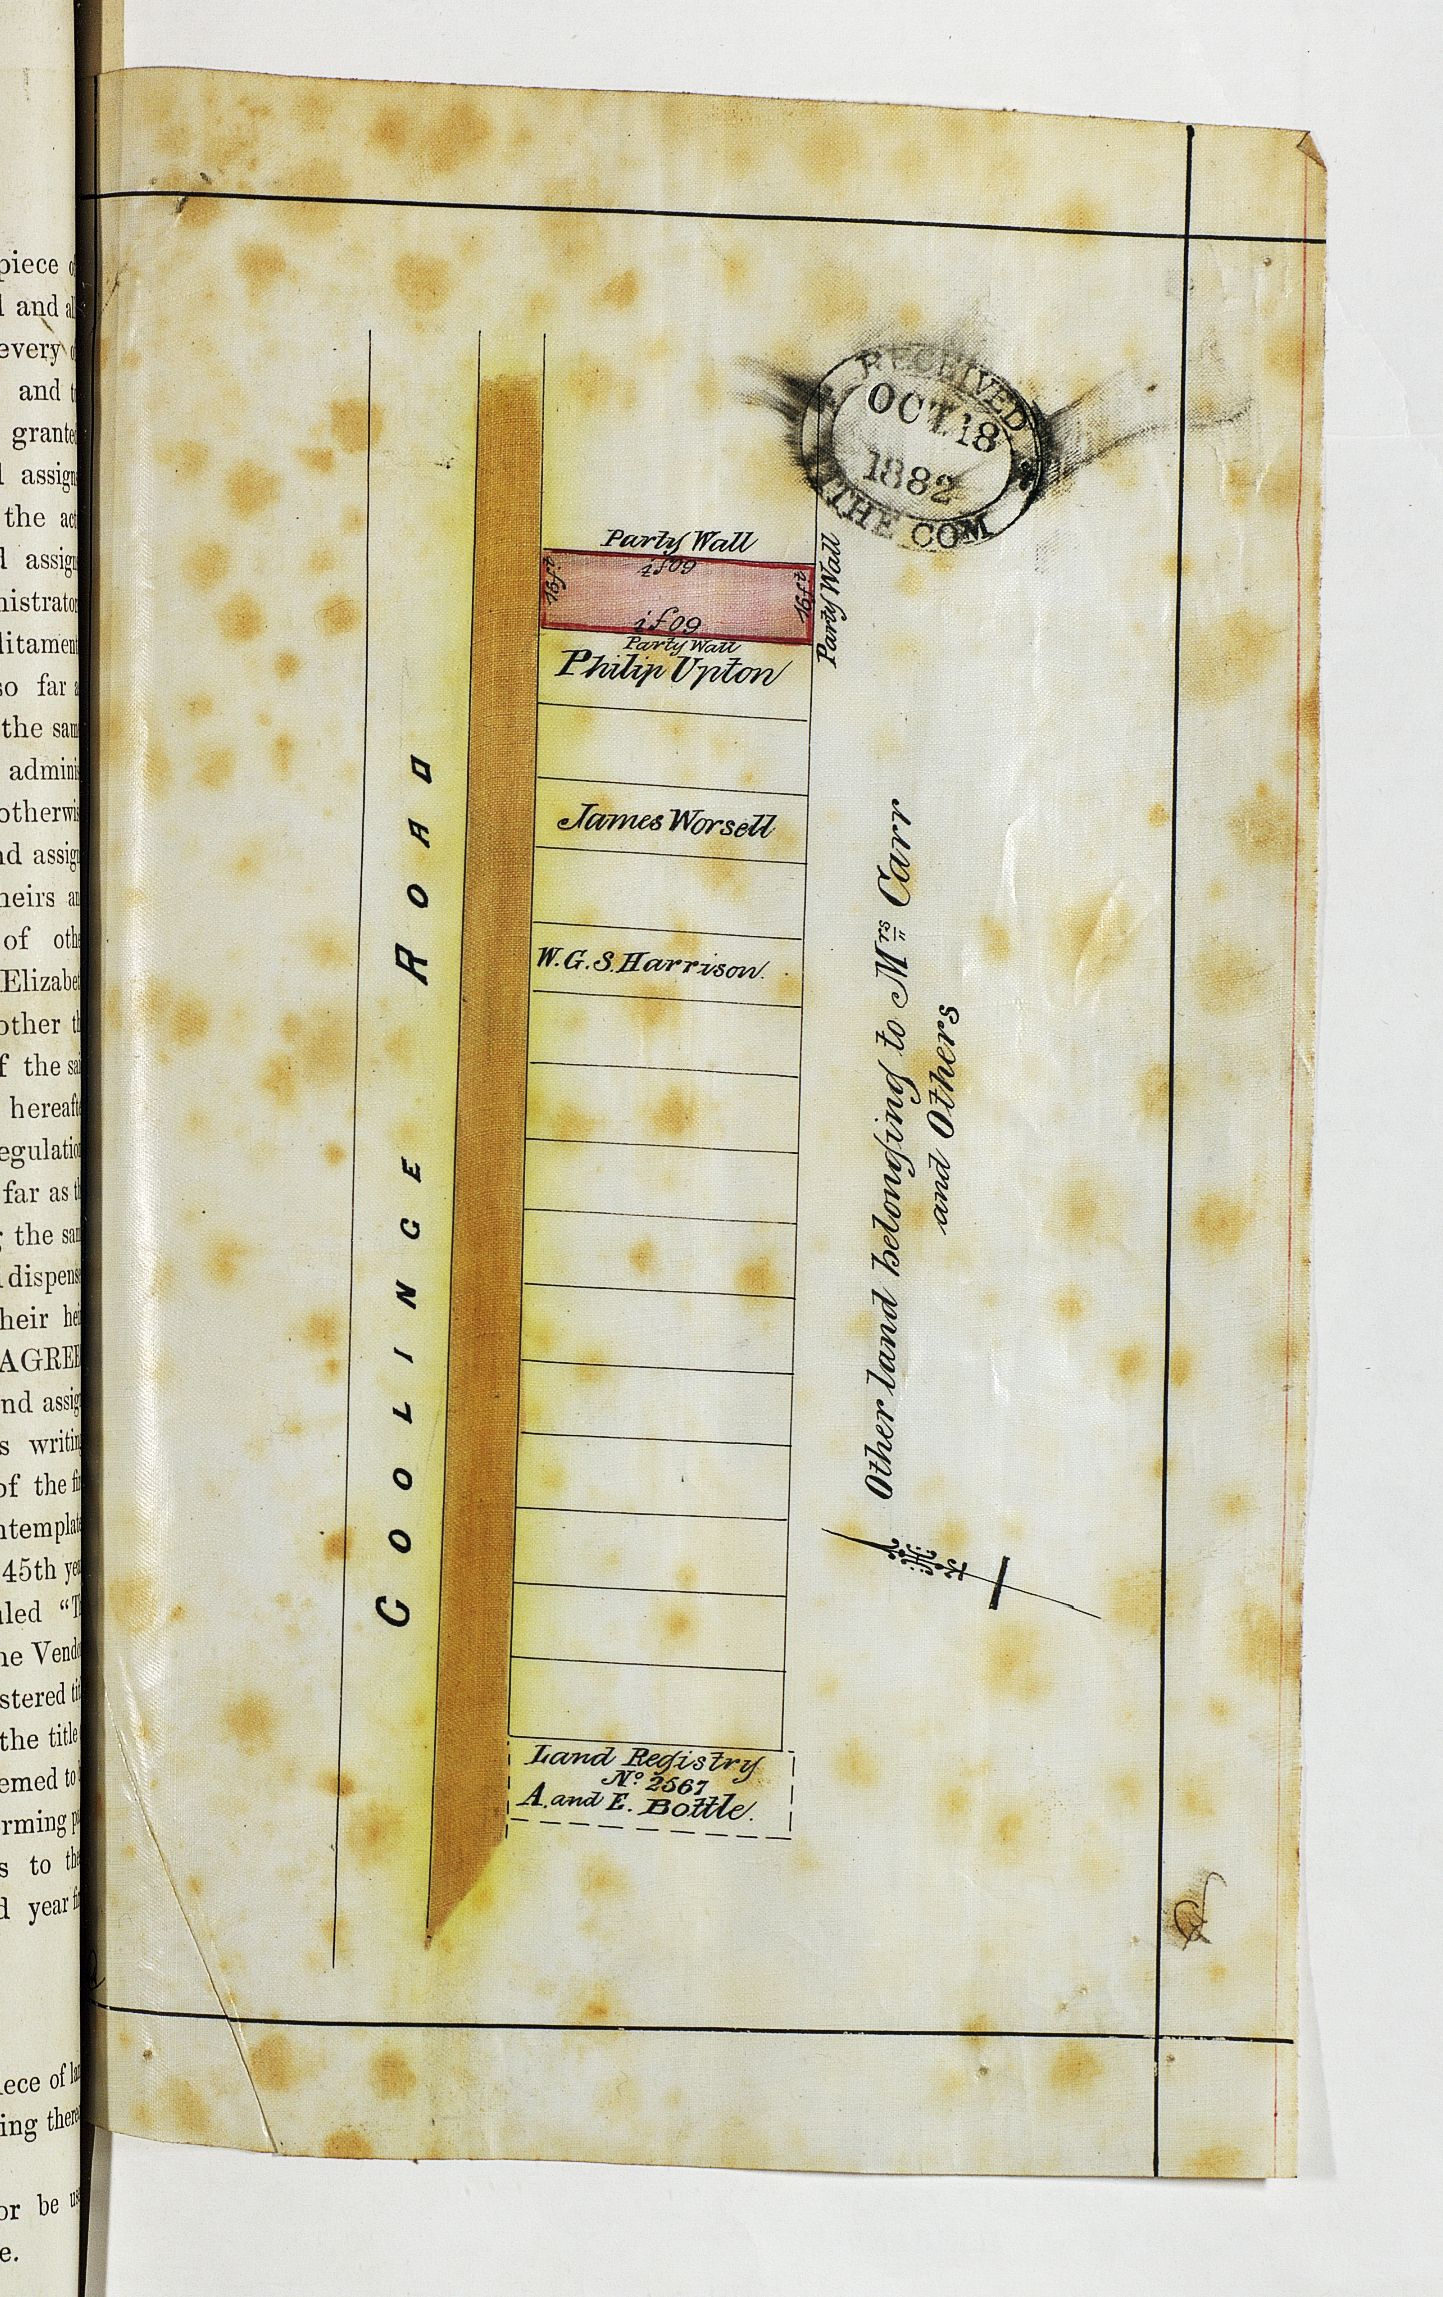 piece
and
every
and
granted
assign
the act
assign
ministrator
ditament
so far
the same
adminis
otherwis
nd assign
heirs
of oth
Elizabet
other
f the
hereaft
egulation
far as
the sam
dispens
their
AGREE
nd assig
s writin
of the
ntemplat
45th
uled
Vend
stered
the title
emed to
rming
s to
year
iece of
ing there
or be
e.
RECEIVED
OCT. 18
1882
THE COM
Party Wall
60ft
16ft
16ft
Party Wall
60ft
Party Wall
Philip Upton
James Worsell
W. G. S. Harrison.
COOLINGE ROAD
Other land belonging to Mrs Carr
and Others
Land Registry
No. 2567
A. and E. Bottle.